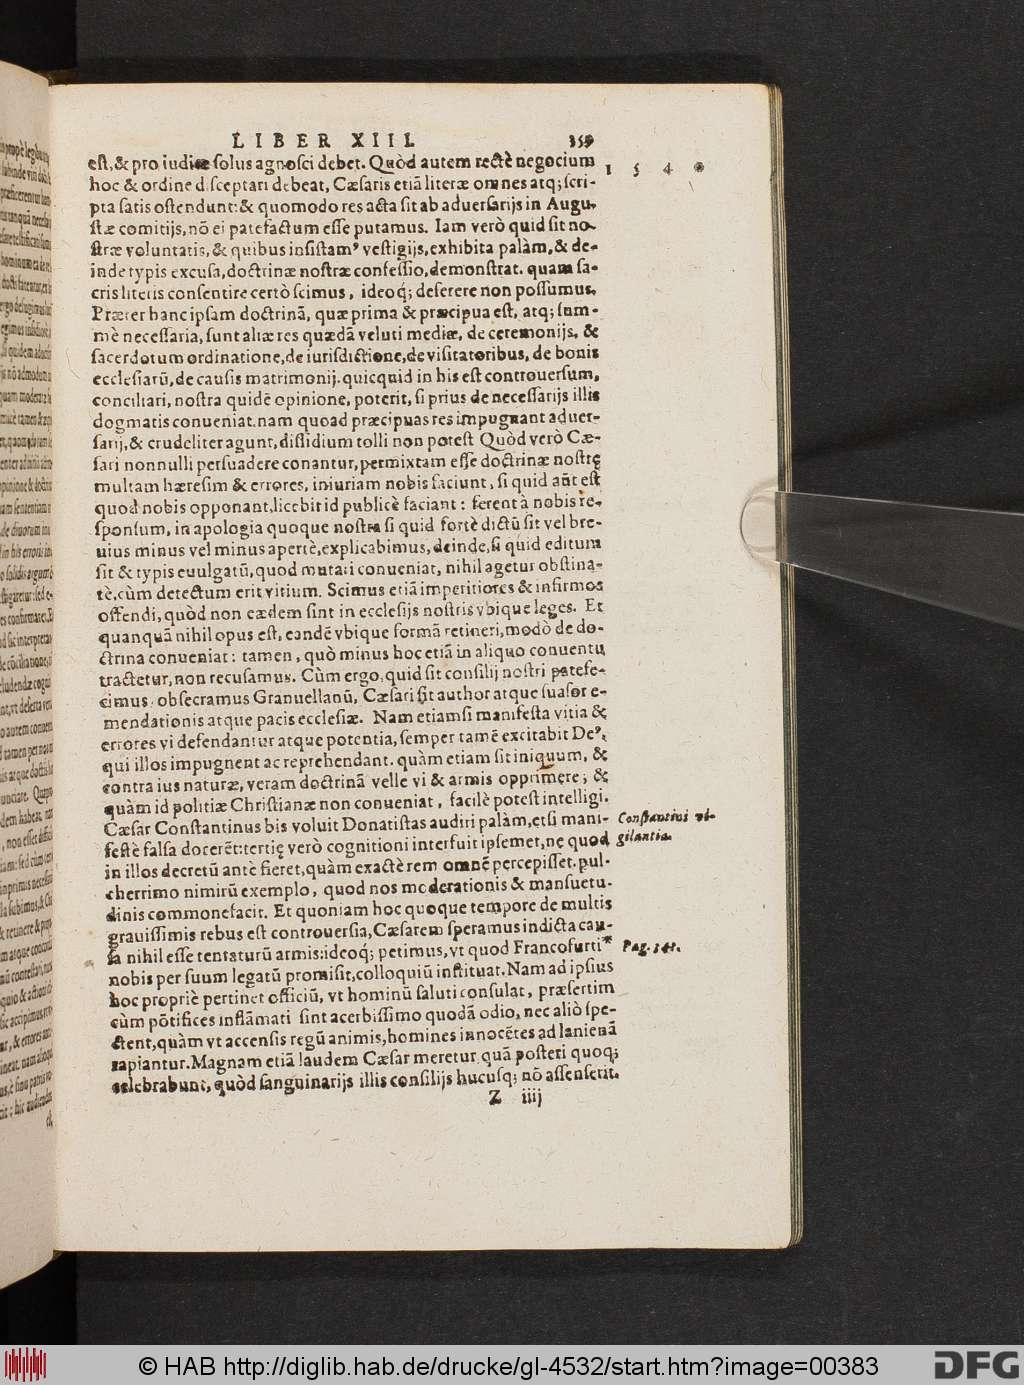 LIBER XIII. 359
est, & pro iudice solus agnosci debet. Quòd autem rectè negocium
1 5 4 0
hoc & ordine disceptari debeat, Cæsaris etiã literæ omnes atq; scri-
pta satis ostendunt: & quomodo res acta sit ab aduersarijs in Augu-
stæ comitijs, nõ ei patefactum esse putamus. Iam verò quid sit no-
stræ voluntatis, & quibus insistamꝰ vestigijs, exhibita palàm, & de-
inde typis excusa, doctrinæ nostræ confessio, demonstrat. quam sa-
cris literis consentire certò scimus, ideoq́; deserere non possumus.
Præter hanc ipsam doctrinã, quæ prima & præcipua est, atq; sum-
mè necessaria, sunt aliæ res quædã veluti mediæ, de ceremonijs, &
sacerdotum ordinatione, de iurisdictione, de visitatoribus, de bonis
ecclesiarũ, de causis matrimonij. quicquid in his est controuersum,
conciliari, nostra quidẽ opinione, poterit, si prius de necessarijs illis
dogmatis conueniat. nam quoad præcipuas res impugnant aduer-
sarij, & crudeliter agunt, dissidium tolli non potest Quòd verò Cæ-
sari nonnulli persuadere conantur, permixtam esse doctrinæ nostrę
multam hæresim & errores, iniuriam nobis faciunt, si quid aũt est
quod nobis opponant, licebit id publicè faciant: ferent à nobis re-
sponsum, in apologia quoque nostra si quid fortè dictũ sit vel bre-
uius minus vel minus apertè, explicabimus, deinde, si quid editum
sit & typis euulgatũ, quod mutari conueniat, nihil agetur obstina-
tè, cùm detectum erit vitium. Scimus etiã imperitiores & infirmos
offendi, quòd non eædem sint in ecclesijs nostris vbique leges. Et
quanquã nihil opus est, eandẽ vbique formã retineri, modò de do-
ctrina conueniat: tamen, quò minus hoc etiã in aliquo conuentu
tractetur, non recusamus. Cùm ergo, quid sit consilij nostri patefe-
cimus, obsecramus Granuellanũ, Cæsari sit author atque suasor e-
mendationis atque pacis ecclesiæ. Nam etiamsi manifesta vitia &
errores vi defendantur atque potentia, semper tamẽ excitabit Deꝰ,
qui illos impugnent ac reprehendant. quàm etiam sit iniquum, &
contra ius naturæ, veram doctrinã velle vi & armis opprimere; &
quàm id politiæ Christianæ non conueniat, facilè potest intelligi.
Cæsar Constantinus bis voluit Donatistas audiri palàm, etsi mani-
Constantini vi-
festè falsa docerẽt: tertię verò cognitioni interfuit ipsemet, ne quod
gilantia.
in illos decretũ antè fieret, quàm exactè rem omnẽ percepisset. pul-
cherrimo nimirũ exemplo, quod nos moderationis & mansuetu-
dinis commonefacit. Et quoniam hoc quoque tempore de multis
grauissimis rebus est controuersia, Cæsarem speramus indicta cau-
sa nihil esse tentaturũ armis: ideoq́; petimus, vt quod Francofurti*
Pag. 341.
nobis per suum legatũ promisit, colloquiũ instituat. Nam ad ipsius
hoc propriè pertinet officiũ, vt hominũ saluti consulat, præsertim
cùm põtifices inflãmati sint acerbissimo quodã odio, nec aliò spe-
ctent, quàm vt accensis regũ animis, homines innocẽtes ad lanienã
rapiantur. Magnam etiã laudem Cæsar meretur quã posteri quoq;
celebrabunt, quòd sanguinarijs illis consilijs hucusq; nõ assenserit.
Z iiij
© HAB http://diglib.hab.de/drucke/gl-4532/start.htm?image=00383
DFG